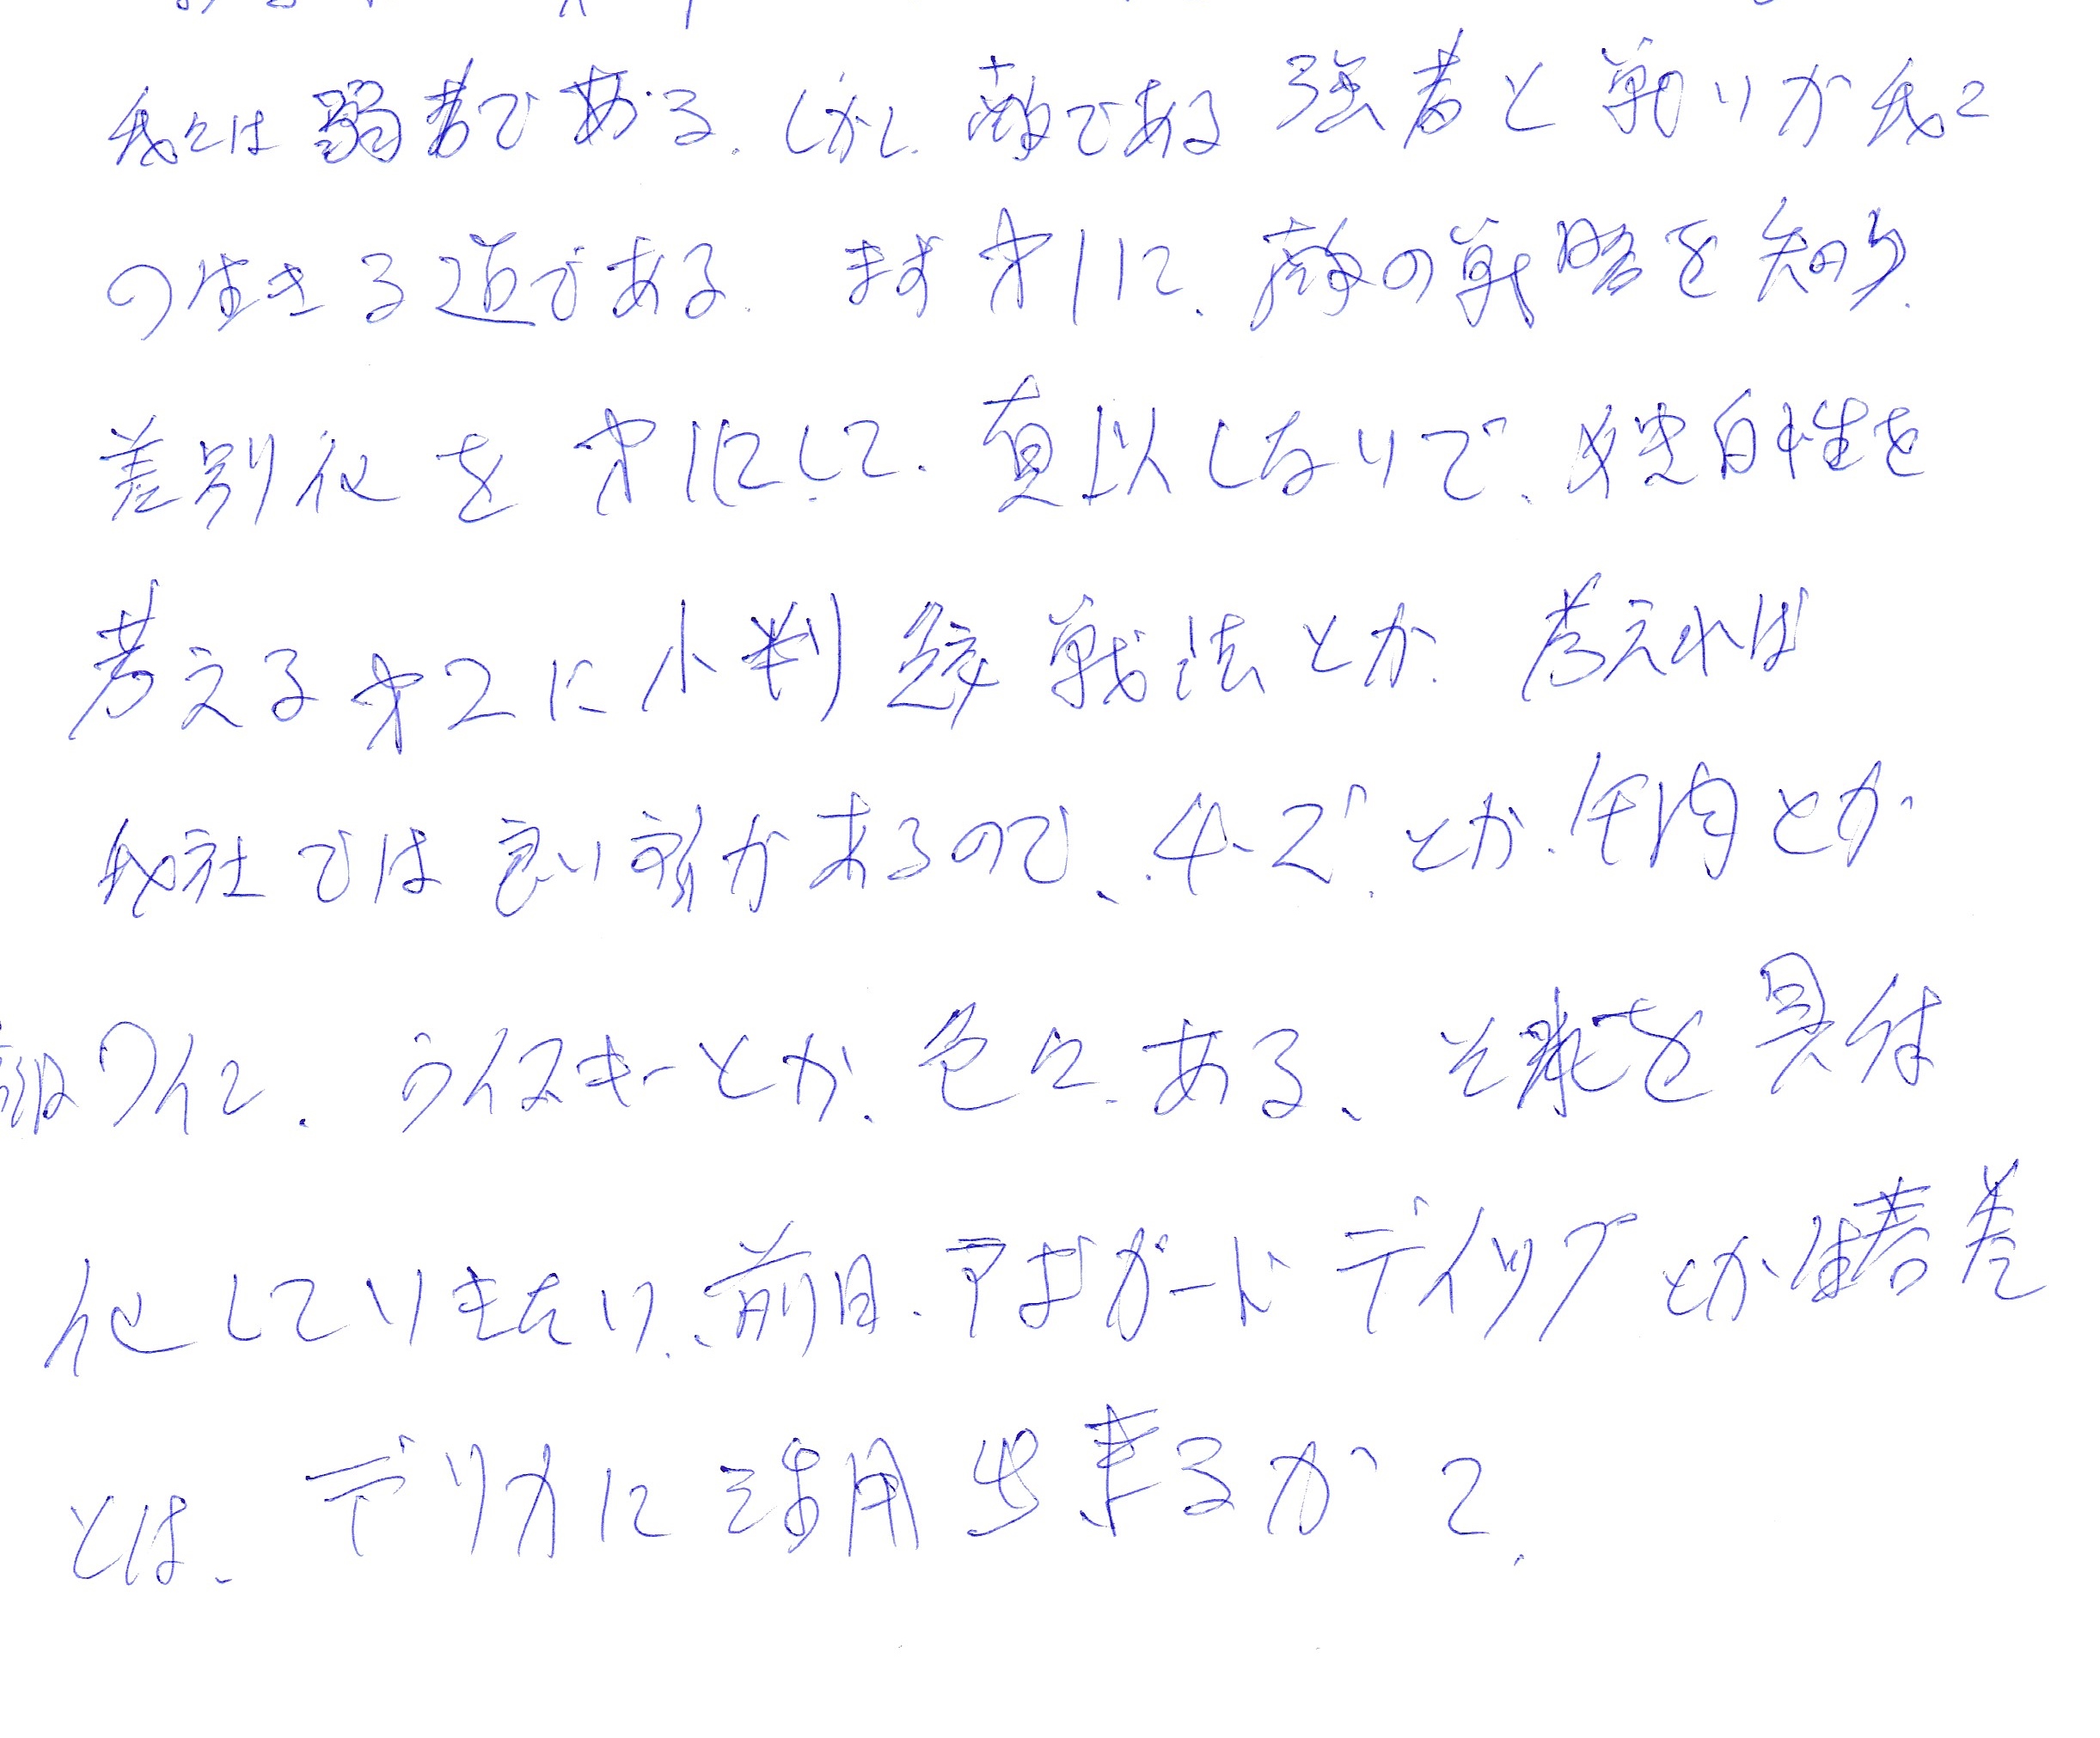 我々は弱者である。しかし、敵である強者と戦いが我々
の生きる道である。まず才1に、敵の戦略を知り、
差別化を才1にして、真似しないで、独自性を
考える才2に小判鮫戦法とか、考えれば
我社では良い客が来るので、チーズとか、牛肉とか
ワイン、ウイスキーとか、色々ある、それを具体
化していきたい、前日、アボガードディップとか生春巻
とは、デリカに活用出来るがで、